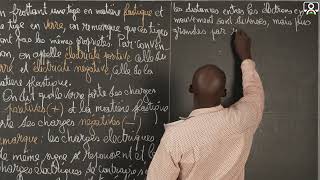 En frottant une tige en matière plastique et
une tige en verre, on remarque que ces tiges
n'ont pas les mêmes propriétés. Par conven
on, on appelle électricité positive celle du
verre et électricité négative celle de la
matière plastique.
On dit que le verre porte des charges
positives (+) et la matière plastique
porte des charges négatives (-)
Remarque: les charges électriques
de même signe se repoussent et les
charges électriques de contraire s
les distances entre les électrons en
mouvement sont diverses, mais plus
grandes par r